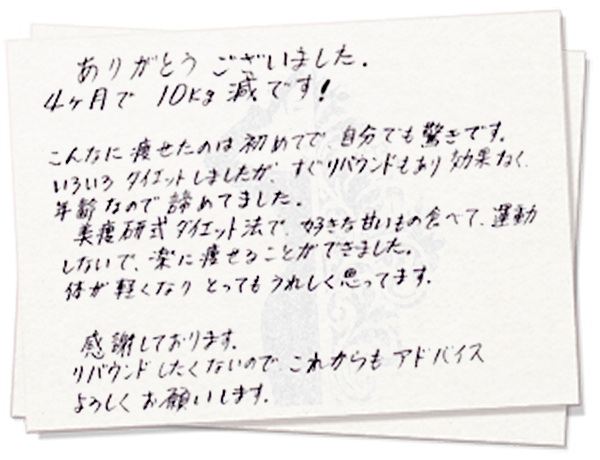 ありがとう ございました.
4ヶ月で 10Kg 減です!
こんなに 痩せたのは 初めてで、自分でも 驚きです.
いろいろ ダイエットしましたが、すぐリバウンドもあり 効果なく、
年齢なので 諦めてました.
美痩研式 ダイエット法で、好きな甘いもの食べて、運動
しないで、楽に痩せることができました.
体が軽くなり とってもうれしく思ってます.
感謝しております.
リバウンドしたくないので、これからも アドバイス
よろしく お願いします.